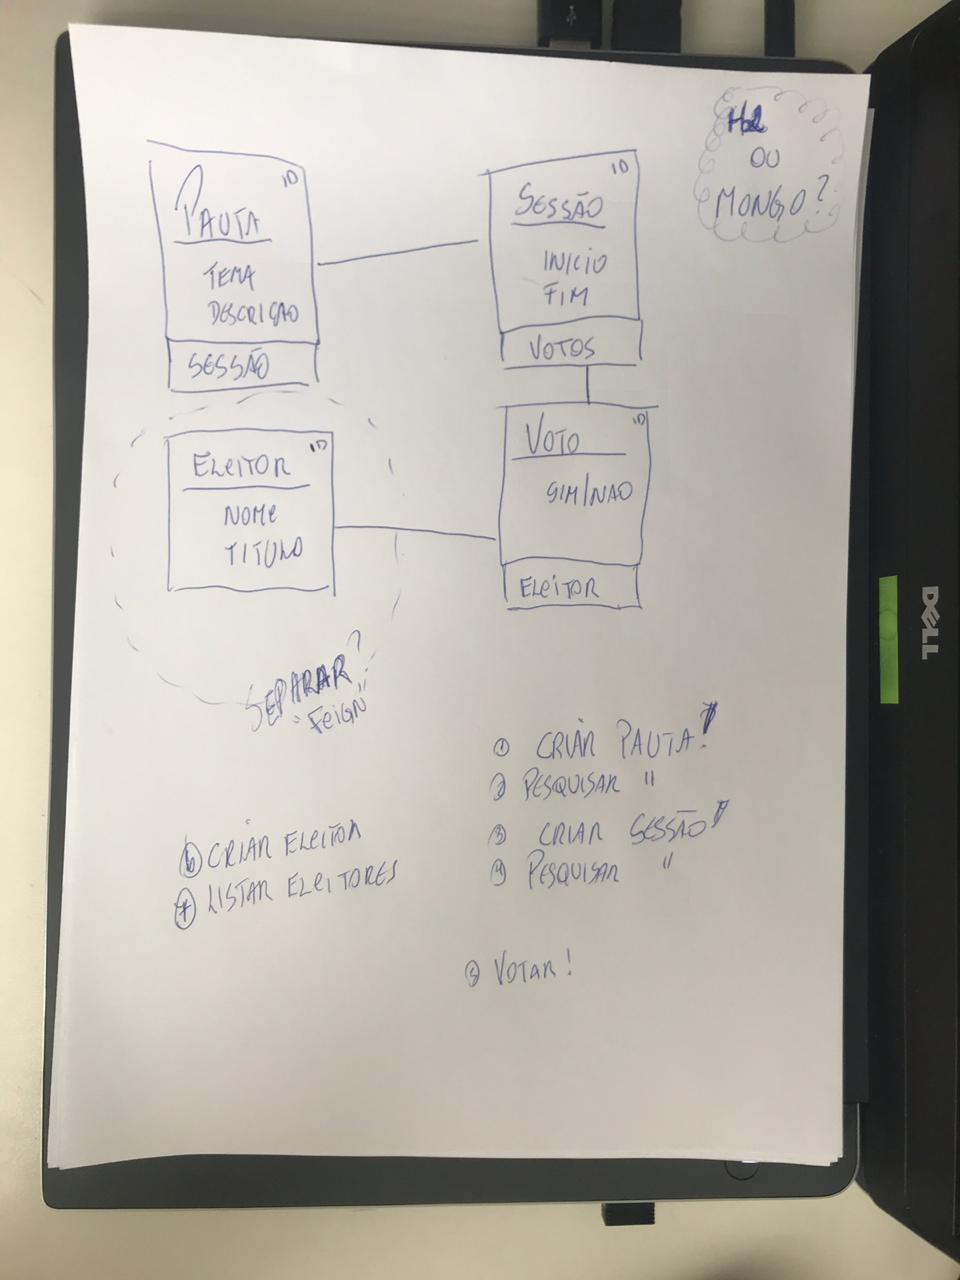 H2
OU
MONGO?
ID
PAUTA
TEMA
DESCRIÇÃO
SESSÃO
ID
SESSÃO
INICIO
FIM
VOTOS
ID
ELEITOR
NOME
TITULO
ID
VOTO
SIM/NAO
ELEITOR
SEPARAR?
"FEIGN"
① CRIAR PAUTA!
② PESQUISAR "
③ CRIAR SESSÃO!
④ PESQUISAR "
⑤ VOTAR!
⑥ CRIAR ELEITOR
⑦ LISTAR ELEITORES
DELL